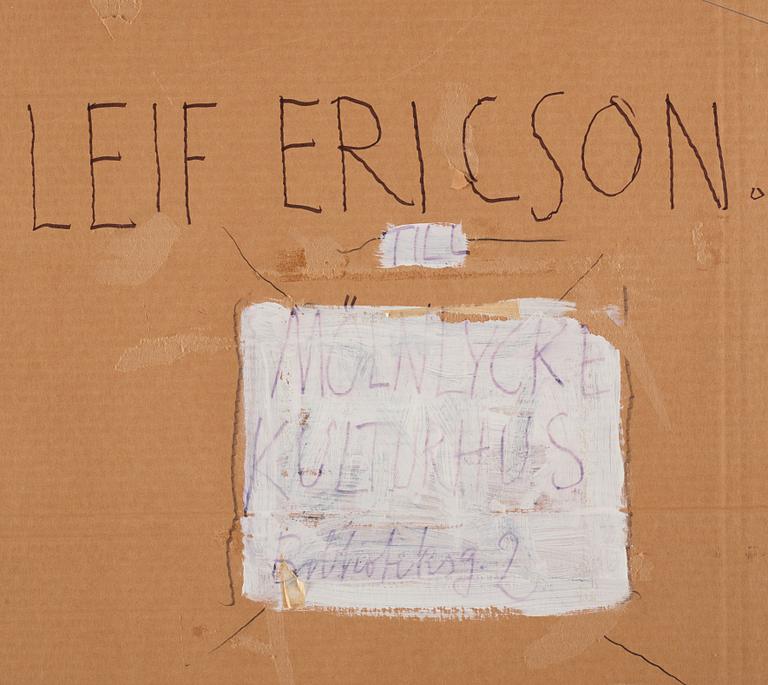 LEIF ERICSON.
TILL
MÖLNLYCKE
KULTURHUS
Biblioteksg. 2